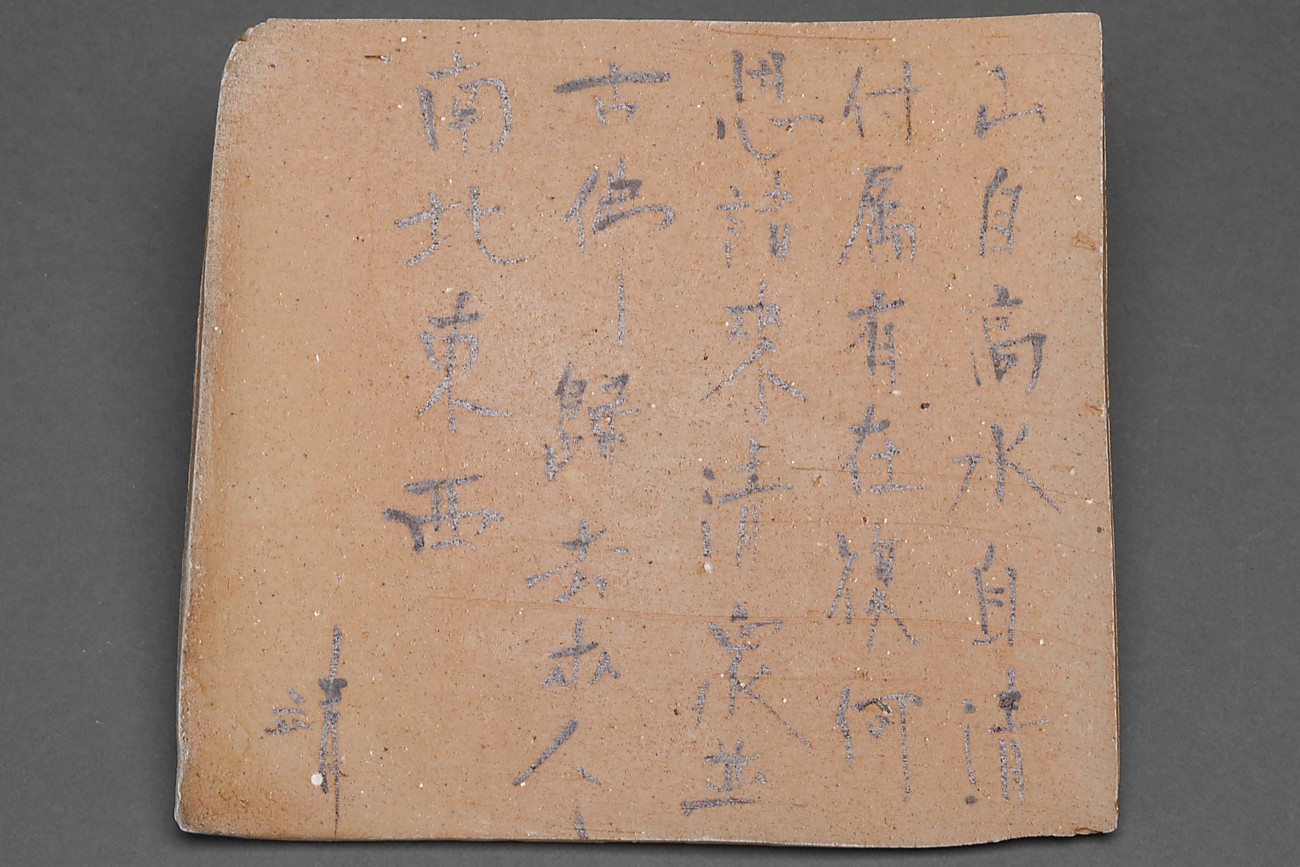 山自高水自清
付属有在復何
思諸来清衆並
古佛一歸去来人人
南北東西
靖